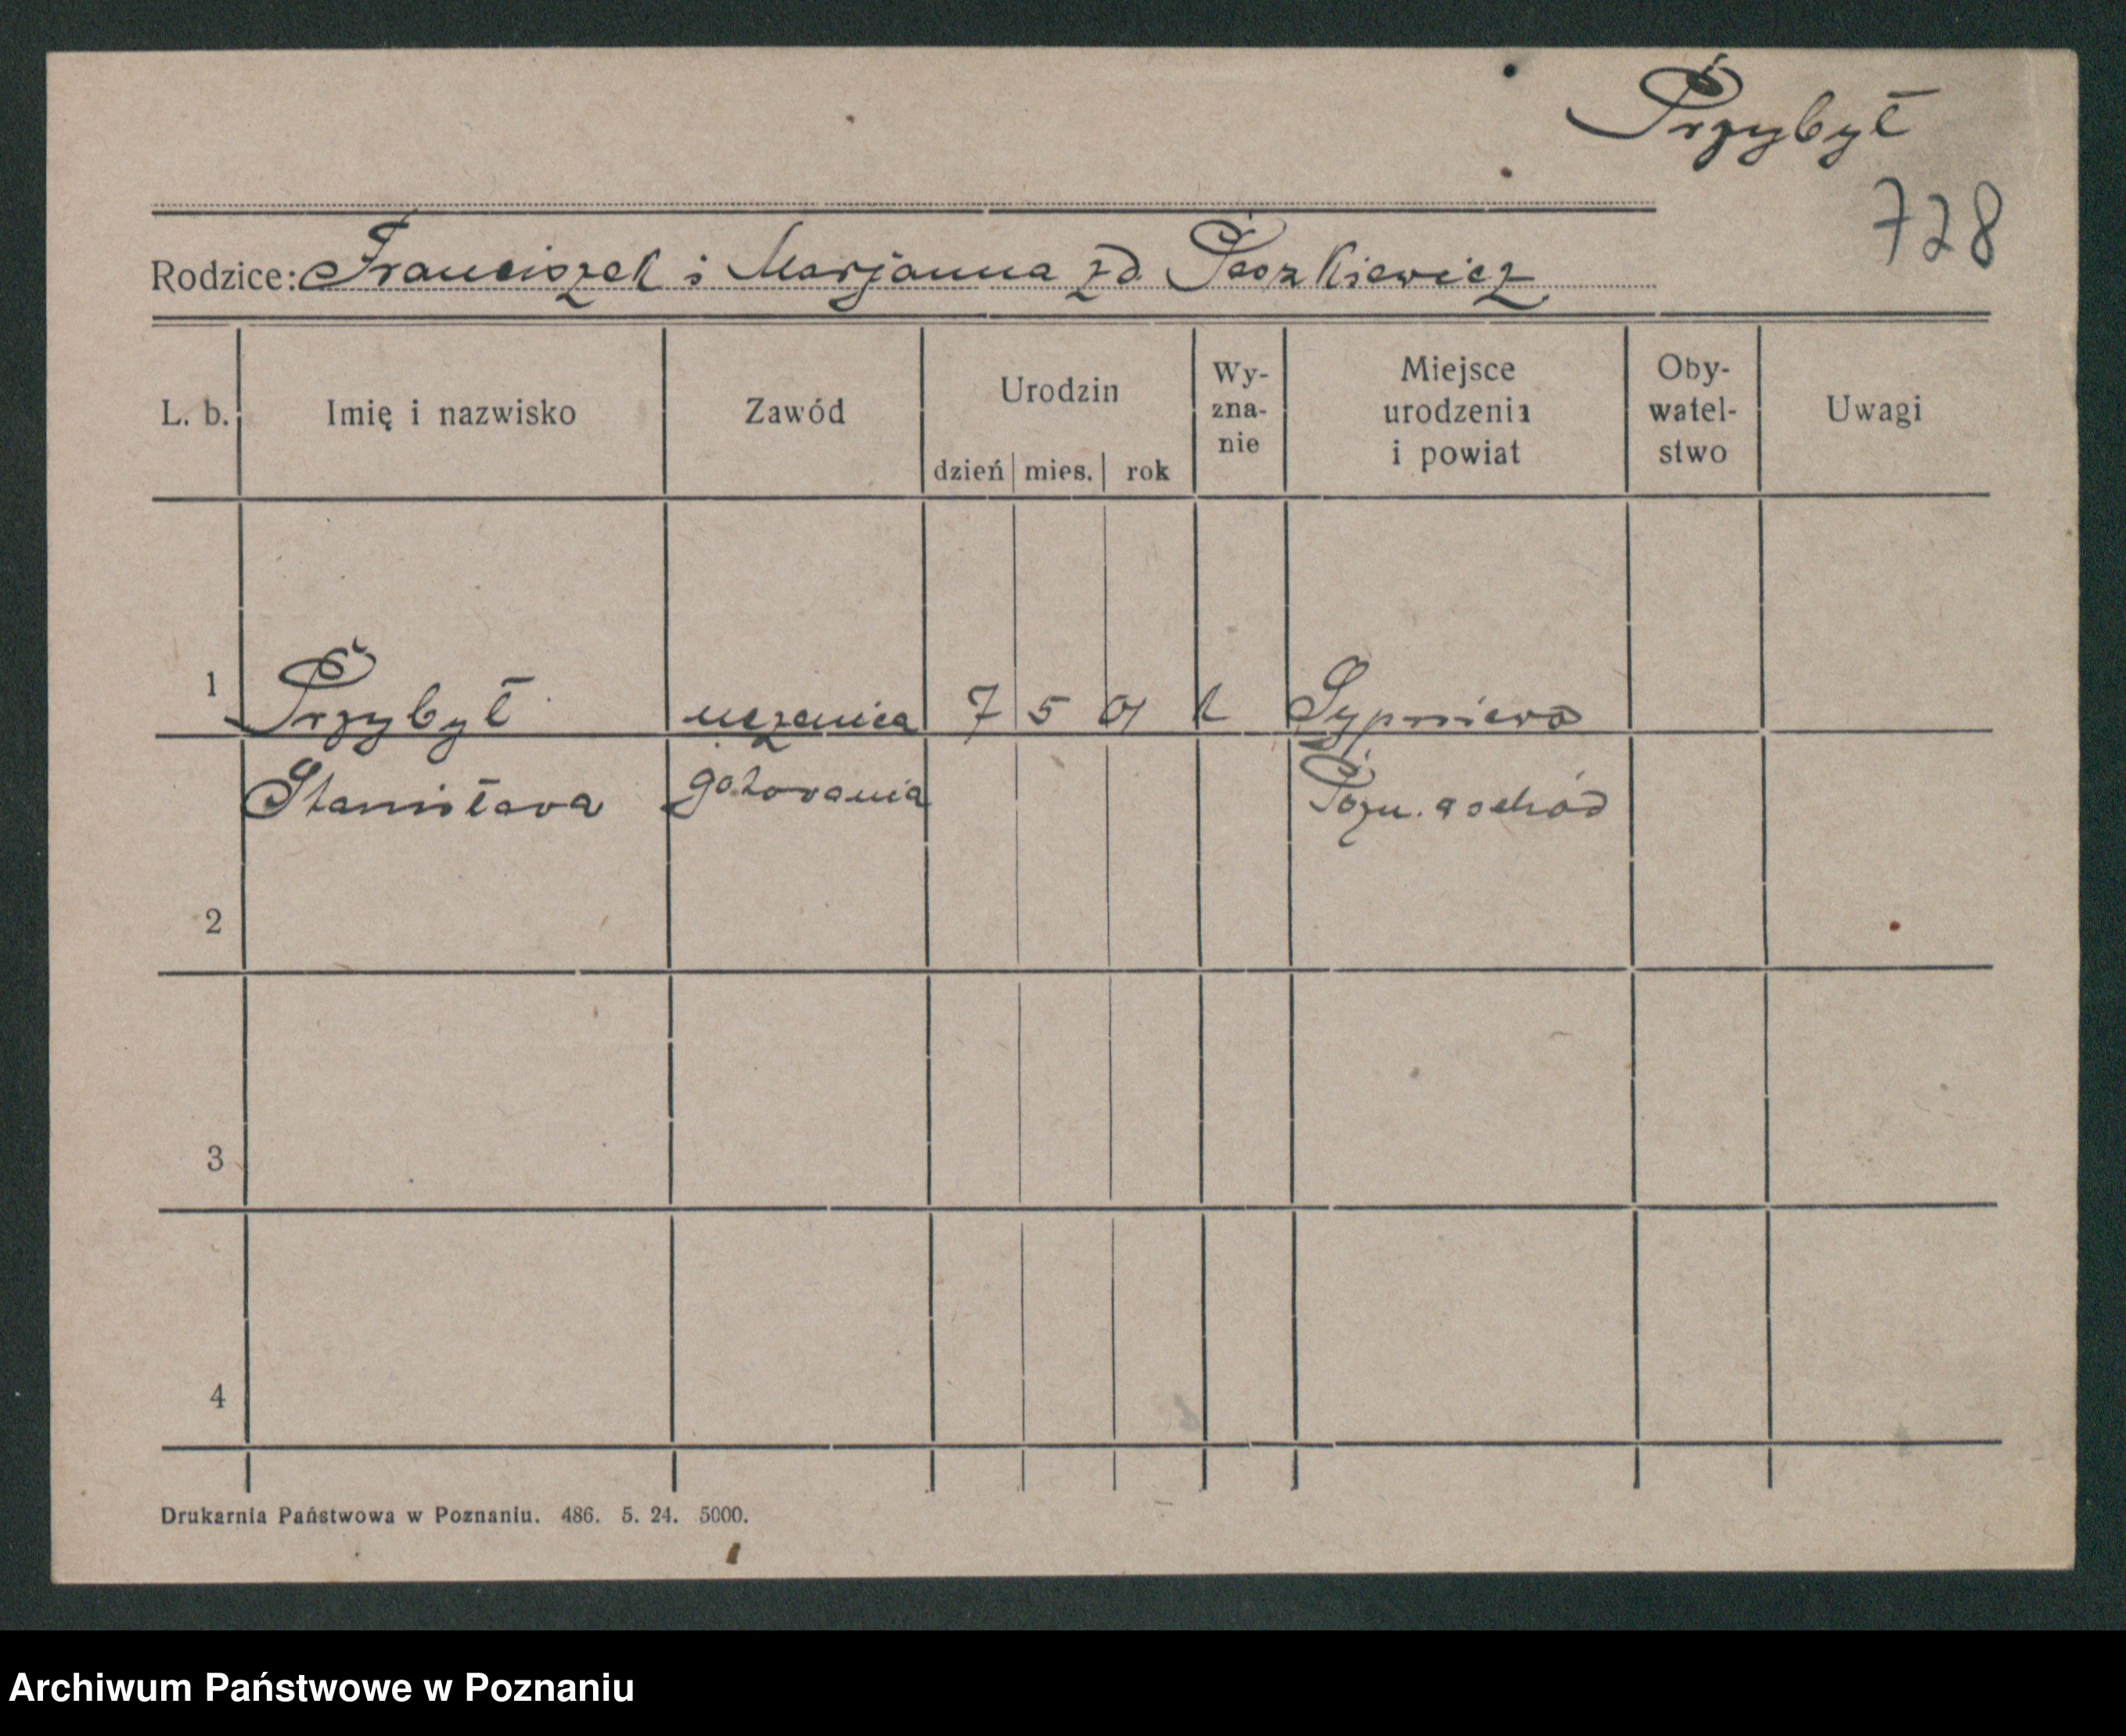 Przybył
728
Rodzice: Franciszek i Marjanna zd Paszkiewicz
L. b. Imię i nazwisko Zawód Urodzin dzień mies. rok Wy-zna-nie Miejsce urodzenia i powiat Oby-watel-stwo Uwagi
1 Przybył uczenica 7 5 01 k Sypniewo
Stanisława gotowania Pozn. wschód
2
3
4
Drukarnia Państwowa w Poznaniu. 486. 5. 24. 5000.
Archiwum Państwowe w Poznaniu